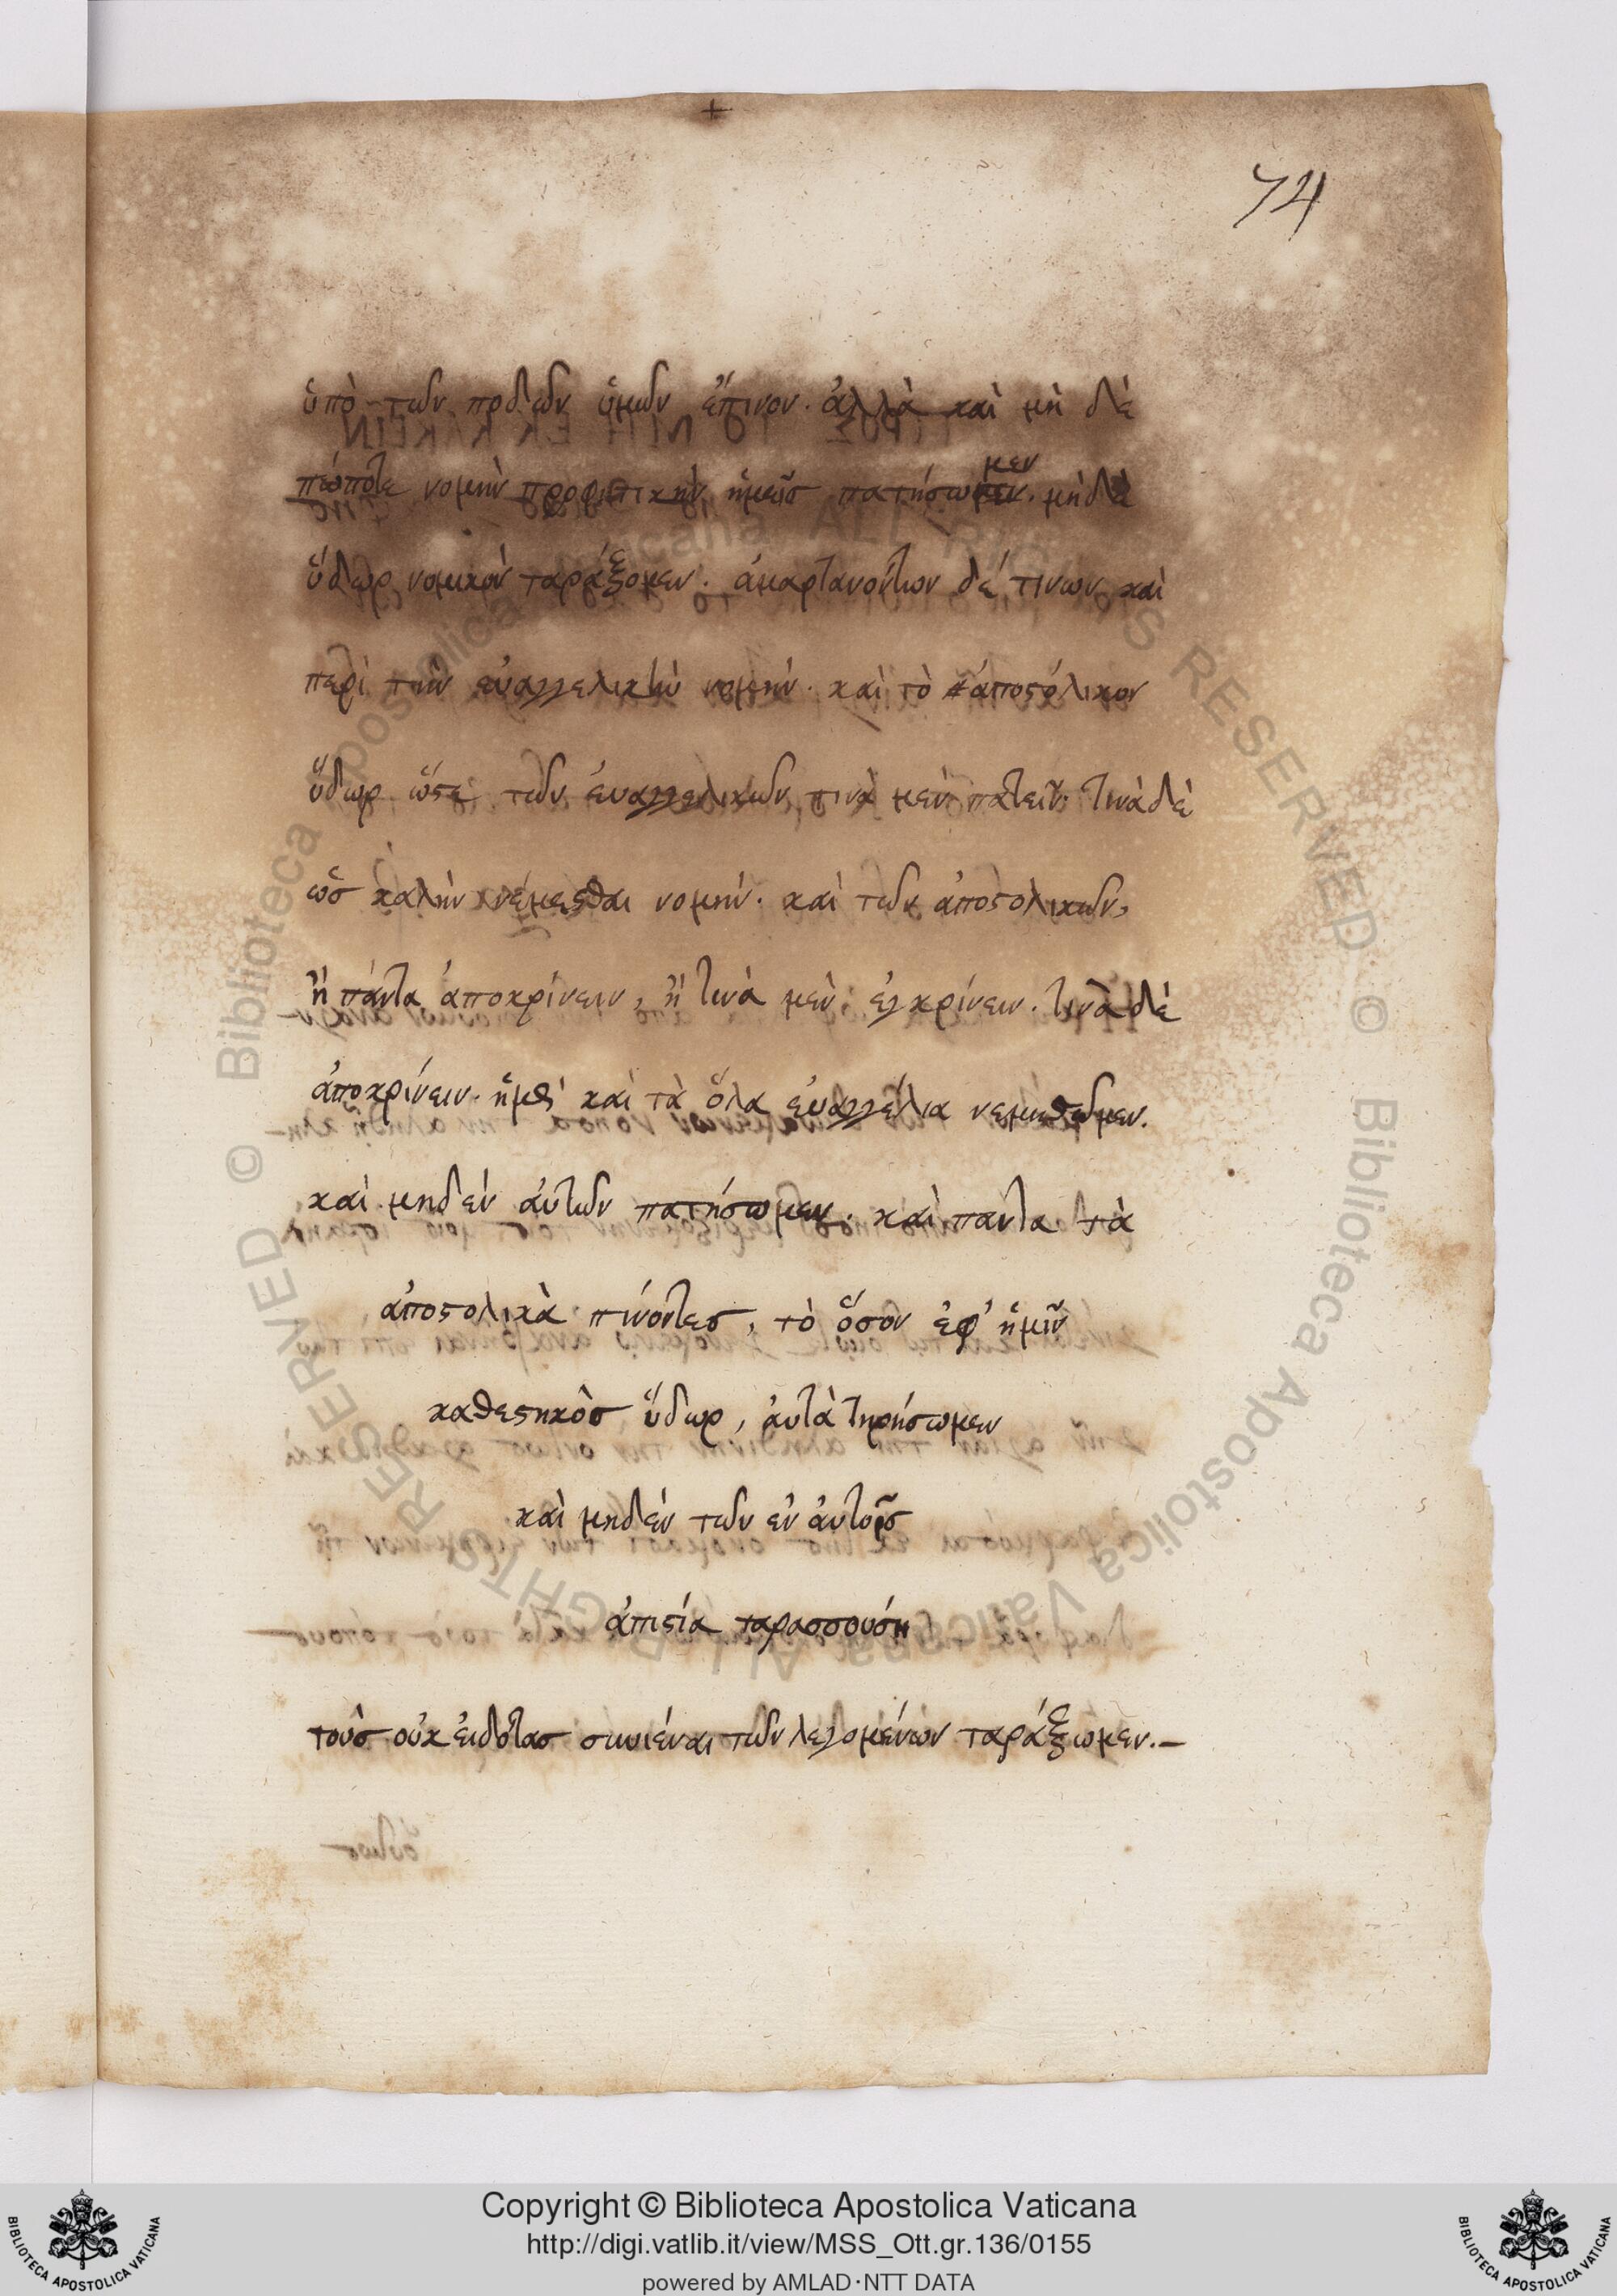 74
ὑπὸ τῶν ποδῶν ὑμῶν ἔπινον. ἀλλὰ καὶ μὴ δὲ
πώποτε νομὴν προφητικὴν ἡμεῖσ πατήσωμεν. μὴδὲ
ὕδωρ νομικὸν ταράξομεν. ἁμαρτανόντων δέ τινων καὶ
περὶ τὴν εὐαγγελικὴν νομὴν. καὶ τὸ ἀποστόλικον
ὕδωρ ὥστε τῶν ἐυαγγελικῶν τινὰ μὲν πατεῖν τινὰ δὲ
ὡσ καλὴν νέμεσθαι νομήν. καὶ τῶν ἀποστολικῶν,
ἢ πάντα ἀποκρίνειν, ἢ τινὰ μὲν ἐγκρίνειν. τινὰ δὲ
ἀποκρίνειν. ἡμεῖς καὶ τὰ ὅλα ἐυαγγέλια νεμηθῶμεν.
καὶ μηδὲν ἀυτῶν πατήσωμεν. καὶ πάντα τὰ
ἀποστολικὰ πίνοντεσ, τὸ ὅσον ἐφ' ἡμῖν
καθεστηκὸσ ὕδωρ, ἀυτὰ τηρήσωμεν
καὶ μηδὲν τῶν ἐν ἀυτοῖσ
ἀπιστία ταρασσούσῃ
τοὺσ οὐκ ἐιδότασ συνιέναι τῶν λεγομένων ταράξωμεν.–
Copyright © Biblioteca Apostolica Vaticana
http://digi.vatlib.it/view/MSS_Ott.gr.136/0155
powered by AMLAD·NTT DATA
BIBLIOTECA APOSTOLICA VATICANA
BIBLIOTECA APOSTOLICA VATICANA